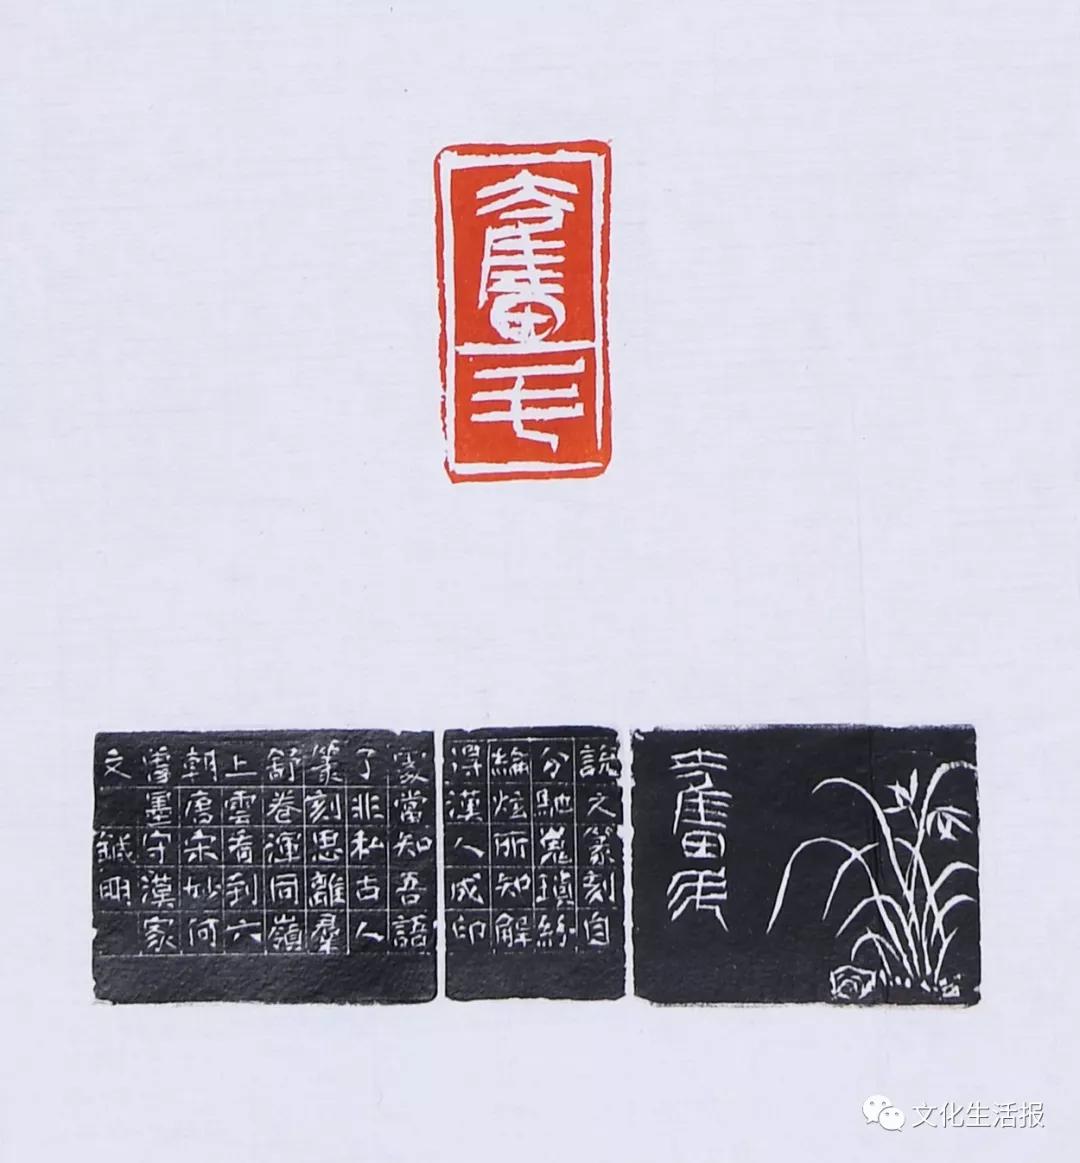 毛
說文篆刻自
分馳嵬瑣紛
綸炫所知解
得漢人成印
處當知吾語
了非私古人
篆刻思離羣
舒卷渾同嶺
上雲看到六
朝唐宋妙何
曾墨守漢家
文 明
文化生活报